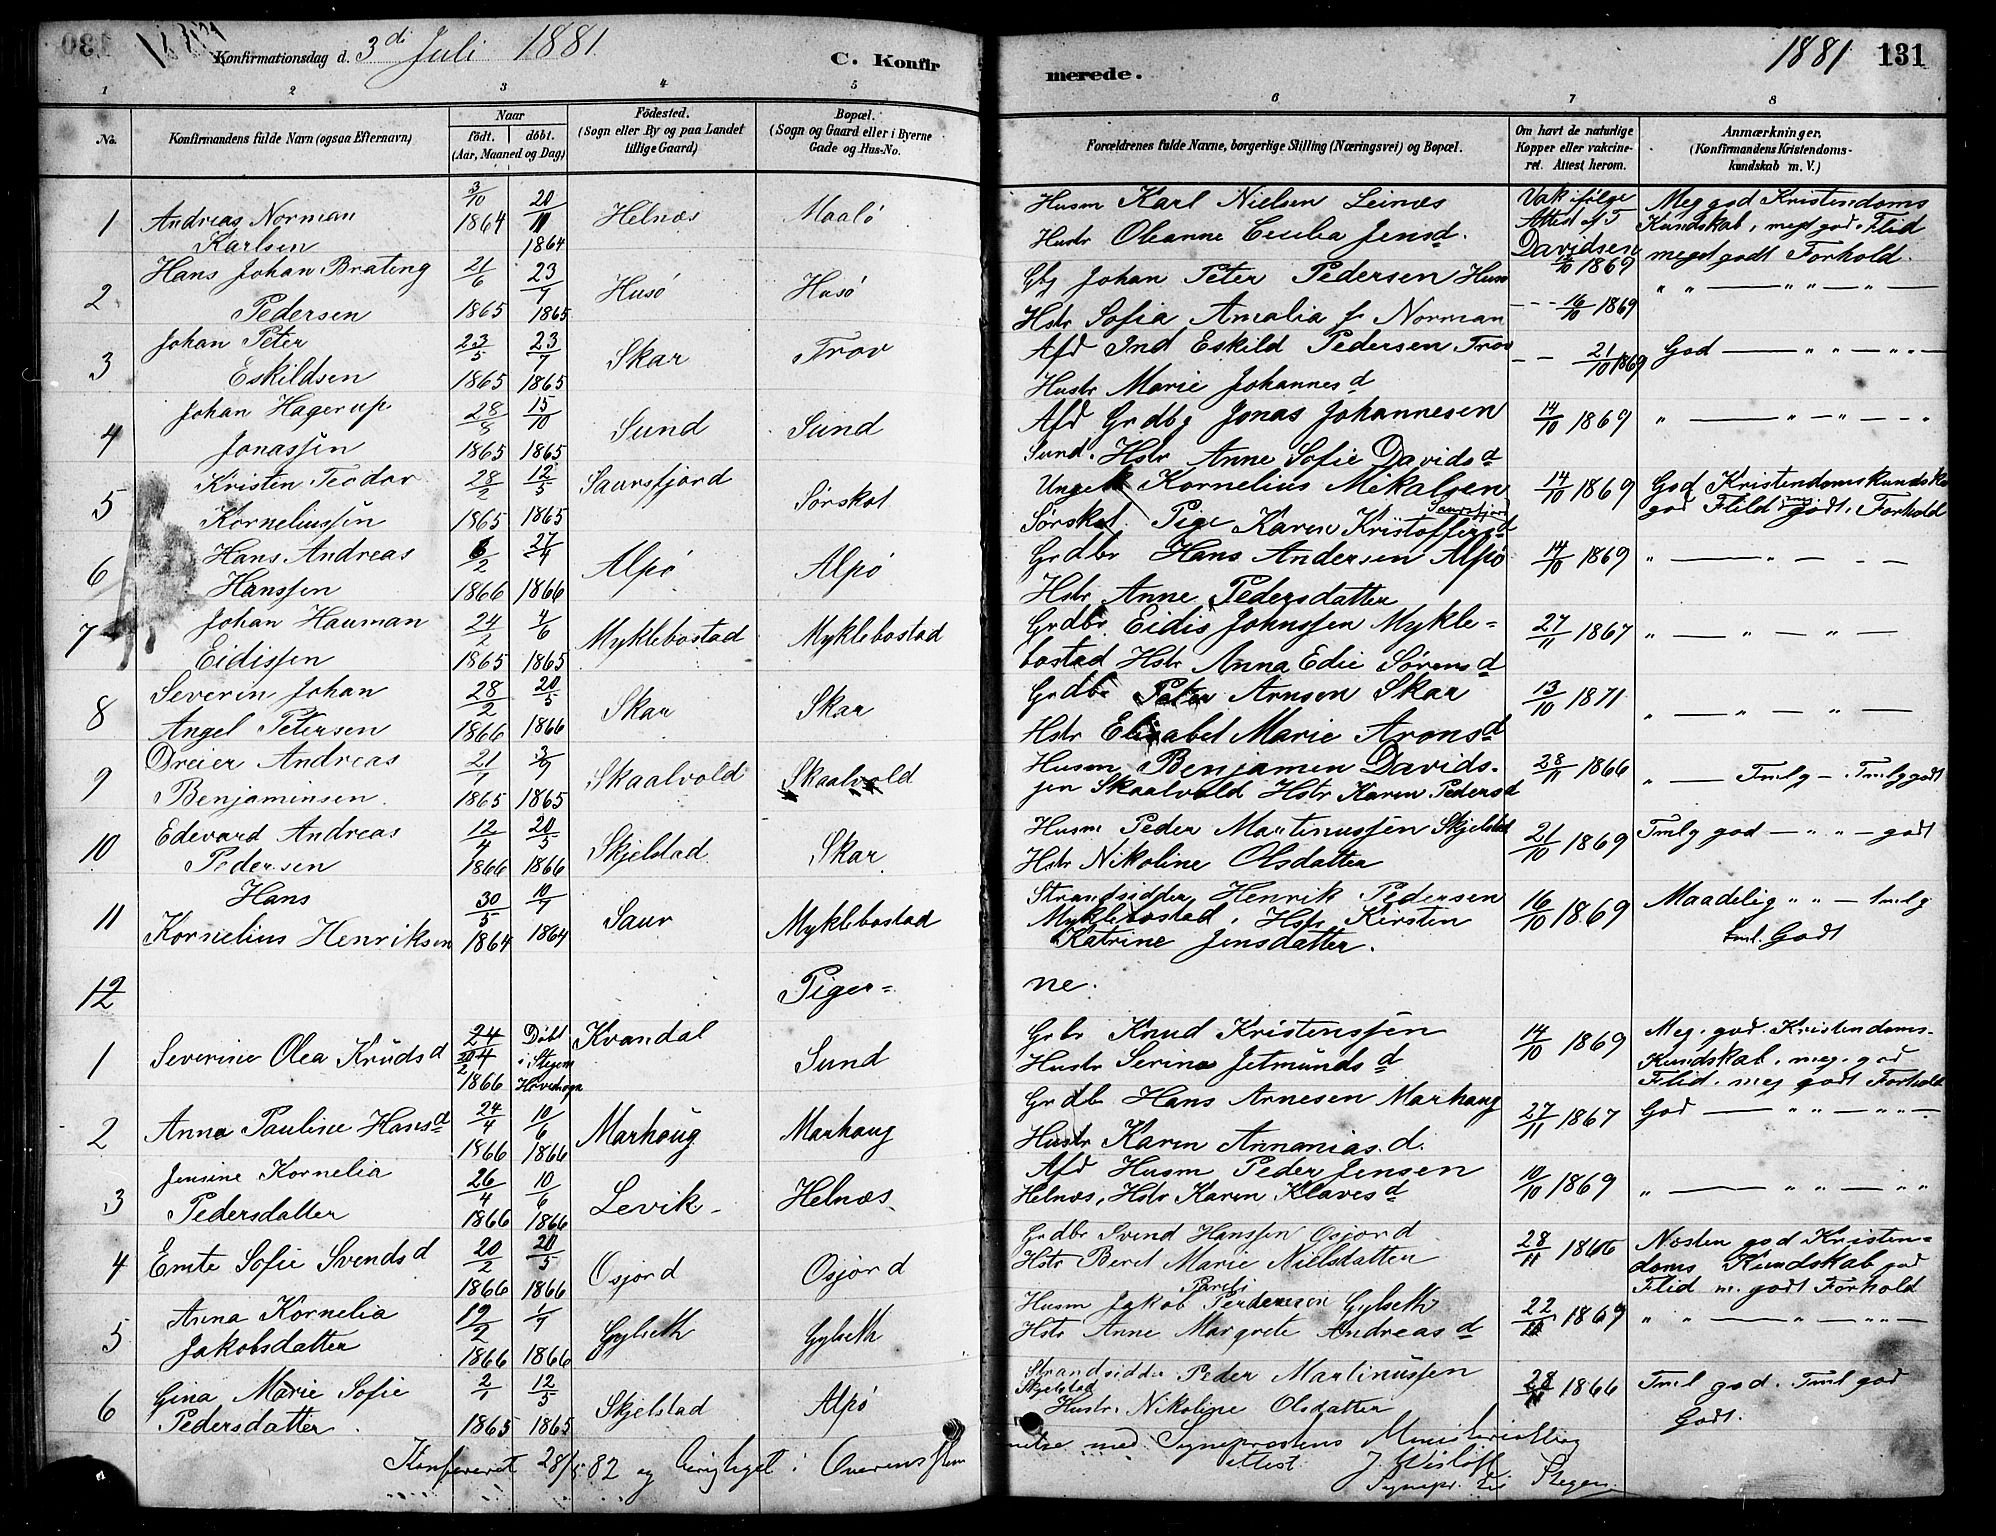 Konfirmationsdag d. 3di Juli 1881
C. Konfirmerede.
1881 131
1 2 3 4 5 6 7 8
No. Konfirmandens fulde Navn (ogsaa Efternavn) Naar født. døbt. (Aar, Maaned og Dag) Födested. (Sogn eller By og paa Landet tillige Gaard) Bopæl. (Sogn og Gaard eller i Byerne Gade og Hus-No. Forældrenes fulde Navne, borgerlige Stilling (Næringsvei) og Bopæl. Om havt de naturlige Kopper eller vakcineret. Attest herom. Anmærkninger. (Konfirmandens Kristendomskundskab m. V.)
1 Andreas Norman Karlsen 3/10 1864 20/11 1864 Helnæs Maalø Husm Karl Nielsen Leinæs Hustr Oleanne Cecilia Jensd. Vak ifølge Attest af T Davidsen 1869 Meg god Kristendoms Kundskab, meget god Flid meget godt Forhold.
2 Hans Johan Brating Pedersen 21/6 1865 23/7 1865 Husø Husø Gbg Johan Peter Pedersen Husø Hstr Sofia Amalia f. Norman --- 16/10 1869 " " — " " — " —
3 Johan Peter Eskildsen 23/5 1865 23/7 1865 Skar Trov Afd Ind Eskild Pedersen Trov Hustr Marie Johannesd -- 21/10 1869 God — " " — " " —
4 Johan Hagerup Jonassen 28/8 1865 15/10 1865 Sund Sund Afd Grdbg Jonas Johannesen Sund. Hstr Anne Sofie Davidsd 14/10 1869 " — " — " — "
5 Kristen Teodor Korneliussen 28/2 1865 12/5 1865 Saursfjord Sørskot Ungk Kornelius Mikalsen Sørskot. Pige Karen Kristoffersd Saursfjord 14/10 1869 God Kristendomskundskab god Flid meg godt Forhold
6 Hans Andreas Hanssen 6/2 1866 27/4 1866 Alpø Alpø Grdbr Hans Andersen Alpø Hstr Anne Pedersdatter 14/10 1869 " — " — - —
7 Johan Hauman Eidissen 24/2 1865 4/6 1865 Myklebostad Myklebostad Grdbr. Eidis Johnssen Myklebostad Hstr Anna Edie Sørensd 27/11 1867 " — " — " —
8 Severin Johan Angel Petersen 28/2 1866 20/5 1866 Skar Skar Grdbr Peter Arnsen Skar Hstr Elisabet Marie Aronsd 13/10 1871. " — " — " —
9 Dreier Andreas Benjaminsen. 21/1 1865 3/9 1865 Skaalvold Skaalvold Husm Benjamen Davidssen Skaalvold Hstr Karen Pedersd 28/11 1866 " — Tmlg — . Tmlg godt
10 Edevard Andreas Pedersen 12/4 1866 20/5 1866 Skjelstad Skar Husm Peder Martinussen Skjelstad Hstr Nikoline Olsdatter 21/10 1869 Tmlg god — " " — godt
11 Hans Kornelius Henriksen 30/5 1864 10/7 1864 Saur Myklebostad Strandsidder Henrik Pedersen Myklebostad, Hstr Kirsten Katrine Jensdatter. 16/10 1869 Maadelig " " — tmlg tml. Godt
12 Pigerne.
1 Severine Olea Knudsd 24/4 1866 Døbt i Stegen Kvandal Sund Grbr Knud Kristenssen Hustr Serina Jetmundsd 14/10 1869 Meg. god. Kristendoms-Kundskab, meg. god Flid. meg godt Forhold
2 Anna Pauline Hansd 24/4 1866 10/6 1866 Marhaug Marhaug Grdb Hans Arnesen Marhaug Hustr Karen Annanias.d. 27/11 1867 God — " " — " " —
3 Jensine Kornelia Pedersdatter 26/4 1866 10/6 1866 Levik Helnæs Afd Husm Peder Jensen Helnæs, Hstr Karen Klavesd 10/10 1869 " — " — " — " "
4 Emte Sofie Svendsd 20/2 1866 20/5 1866 Osjord Osjord Grdbr Svend Hanssen Osjord Hstr Beret Marie Nielsdatter 28/11 1866 Næsten god Kristendoms Kundskab god Flid m. godt Forhold
5 Anna Kornelia Jakobsdatter 19/2 1866 1/7 1866 Gylseth Gylseth Husm Jakob Pederesen Gylseth Hstr Anne Margrete Andreasd 22/10 1869 " " — " — " " —
6 Gina Marie Sofie Pedersdatter 2/1 1865 12/5 1865 Skjelstad Alpø Strandsidder Peder Martinussen Skjelstad Hustr. Nikoline Olsdatter 28/11 1866 Tml god. Tml god Godt.
Konfereret 28/5 82 og berigtiget i Overensstemmelse med Sognepræstens Ministerialbog
Attest J. Wisløff
Sognepr. til Stegen.